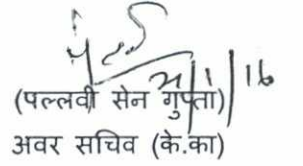 /1/16
(पल्लवी सेन गुप्ता)
अवर सचिव (के.का)